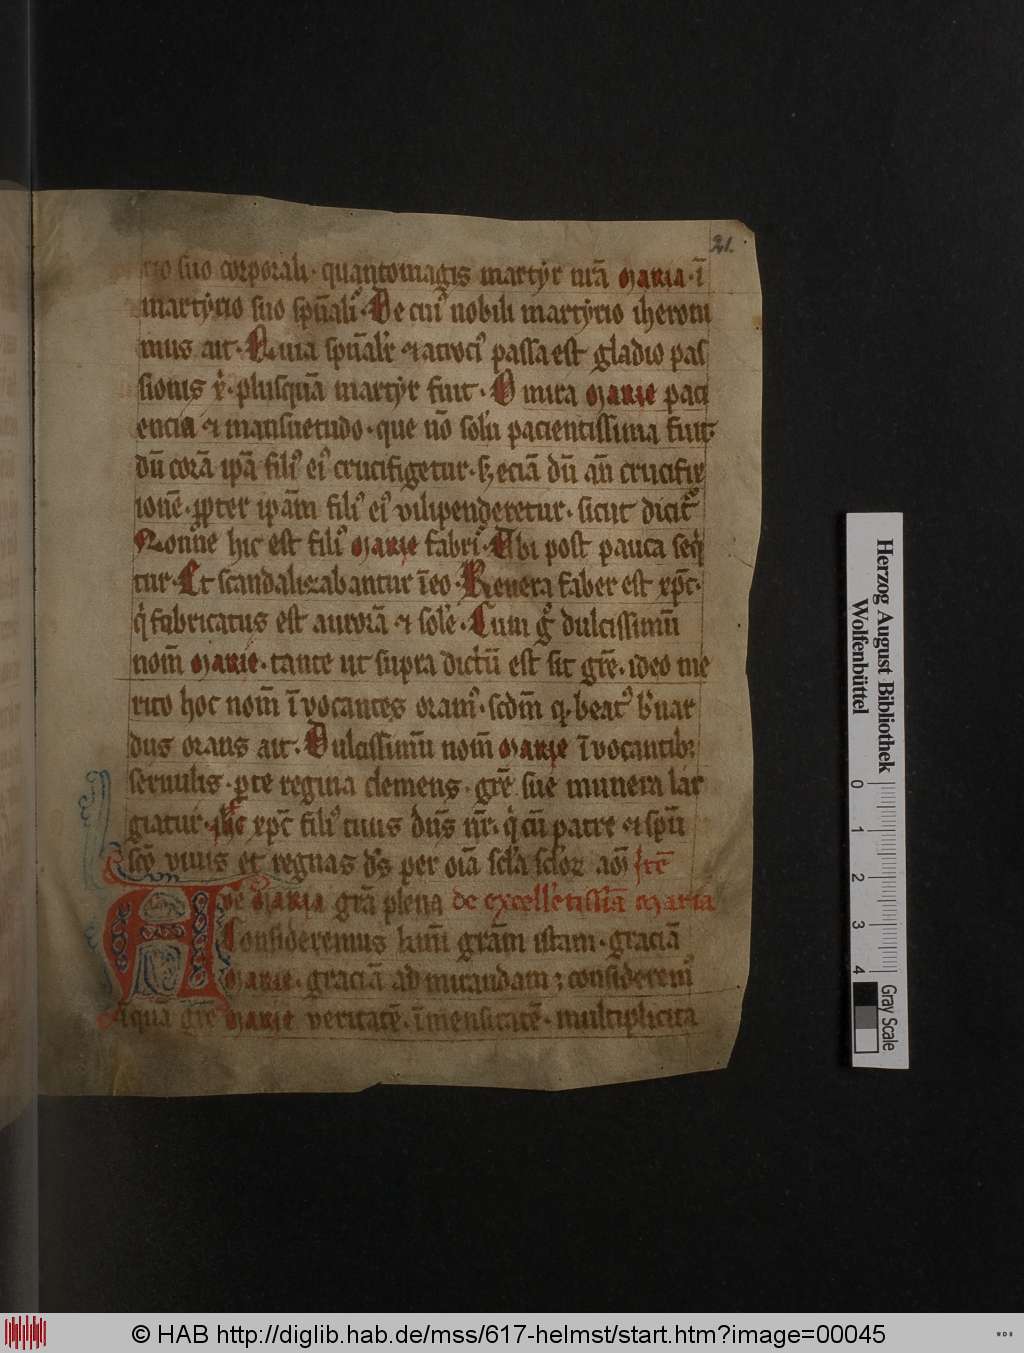 21.
rio suo corporali · quantomagis martẏr nr̄a maria · ī
martẏrio suo spūali᷒ · De cui᷒ nobili martẏrio iheroni
mus ait · Quia spūalr̄ et atroci᷒ passa est gladio pas
sionis x̓ · plusquā martẏr fuit · O mira marie paci
encia et mansuetudo · que nō solū pacientissima fuit
dū corā ip̄a fili᷒ ei᷒ crucifigetur · sꝫ eciā dū an̄ crucifix
ionē · ꝓpter ip̄am fili᷒ ei᷒ vilipenderetur · sicut dicit᷑
Nonne hic est fili᷒ marie fabri᷒ · Ubi post pauca seq̄
tur · Et scandalizabantur ī eo · Revera faber est xp̄c ·
q̓ fabricatus est aurorā et solē · Cum gͦ dulcissimū
nom̄ marie · tante ut supra dictū est sit gr̄e · ideo me
rito hoc nom̄ īvocantes oram᷒ · scdm̄ q · beat᷒ b̄nar
dus orans ait · Dulcissimū nom̄ marie īvocantibꝫ
servulis · ꝑ te regina clemens · gr̄e sue munera lar
giatur · ihc xp̄c fili᷒ tuus dn̄s nr̄ · q̓ cū patre et spū
scō vivis et regnas ds̄ per oīa sc̄la sc̄loꝝ am̄ Itē
Ave maria grā plena de excellētissiā maria
Consideremus kmī grām istam · graciā
marie · graciā admirandam ; considerem᷒
Aquā gr̄e marie veritatē · īmensitatē · multiplicita
Herzog August Bibliothek
Wolfenbüttel
0 1 2 3 4
Gray Scale
© HAB http://diglib.hab.de/mss/617-helmst/start.htm?image=00045